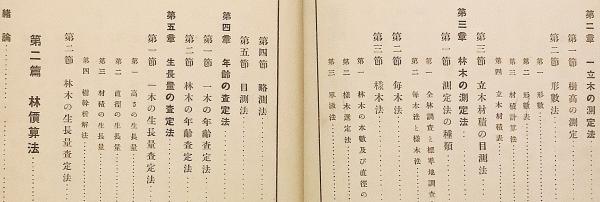 第二章 一立木の測定法
第一節 樹高の測定
第二節 形數法
第一 形數
第二 形數表
第三 材積計算法
第四 立木材積表
第三節 立木材積の目測法
第三章 林木の測定法
第一節 測定法の種類
第一 全林調査と標準地調査
第二 每木法と樣木法
第二節 每木法
第三節 樣木法
第一 林木の本數及び直徑の
第二 樣木選定法
第三
第四節 略測法
第五節 目測法
第四章 年齡の査定法
第一節 一木の年齡査定法
第二節 林木の年齡査定法
第五章 生長量の査定法
第一節 一木の生長量査定法
第一 高さの生長量
第二 直徑の生長量
第三 材積の生長量
第四 樹幹析解法
第二節 林木の生長量査定法
第二篇 林價算法
緖論